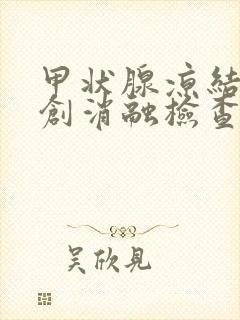 甲状腺凉结
創消融檢查
吴欣見